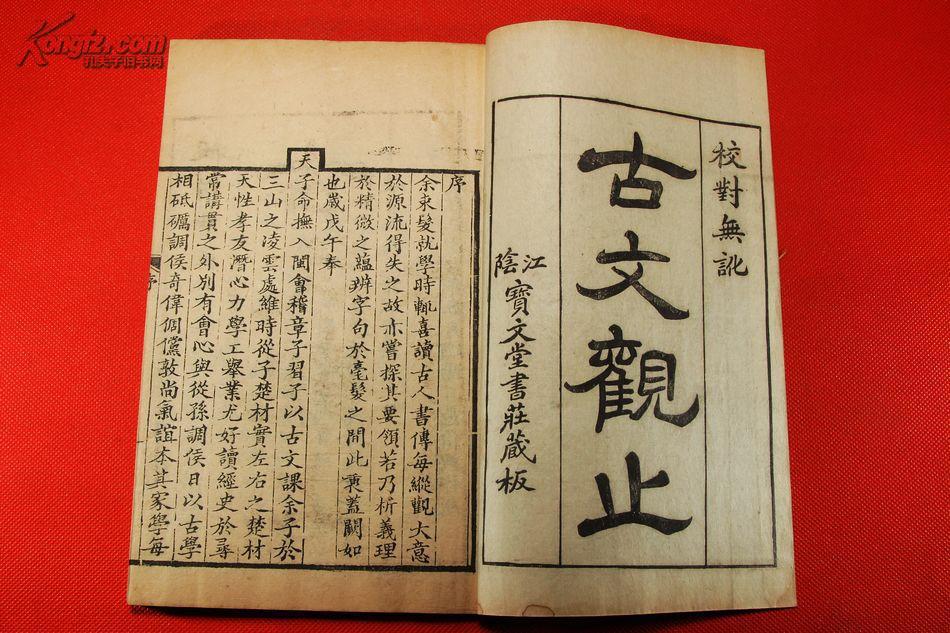 Kongfz.com
孔夫子旧书网
校對無訛
古文觀止
江陰
寶文堂書莊藏板
序
余束髮就學時輒喜讀古人書傳每縱觀大意
於源流得失之故亦嘗探其要領若乃析義理
於精微之蘊辨字句於毫髮之間此衷蓋闕如
也歲戊午奉
天子命撫入閩會稽章子習子以古文課余子於
三山之凌雲處維時從子楚材實左右之楚材
天性孝友潛心力學工舉業尤好讀經史於尋
常講貫之外別有會心與從孫調侯日以古學
相砥礪調侯奇偉倜儻敦尚氣誼本其家學每
序